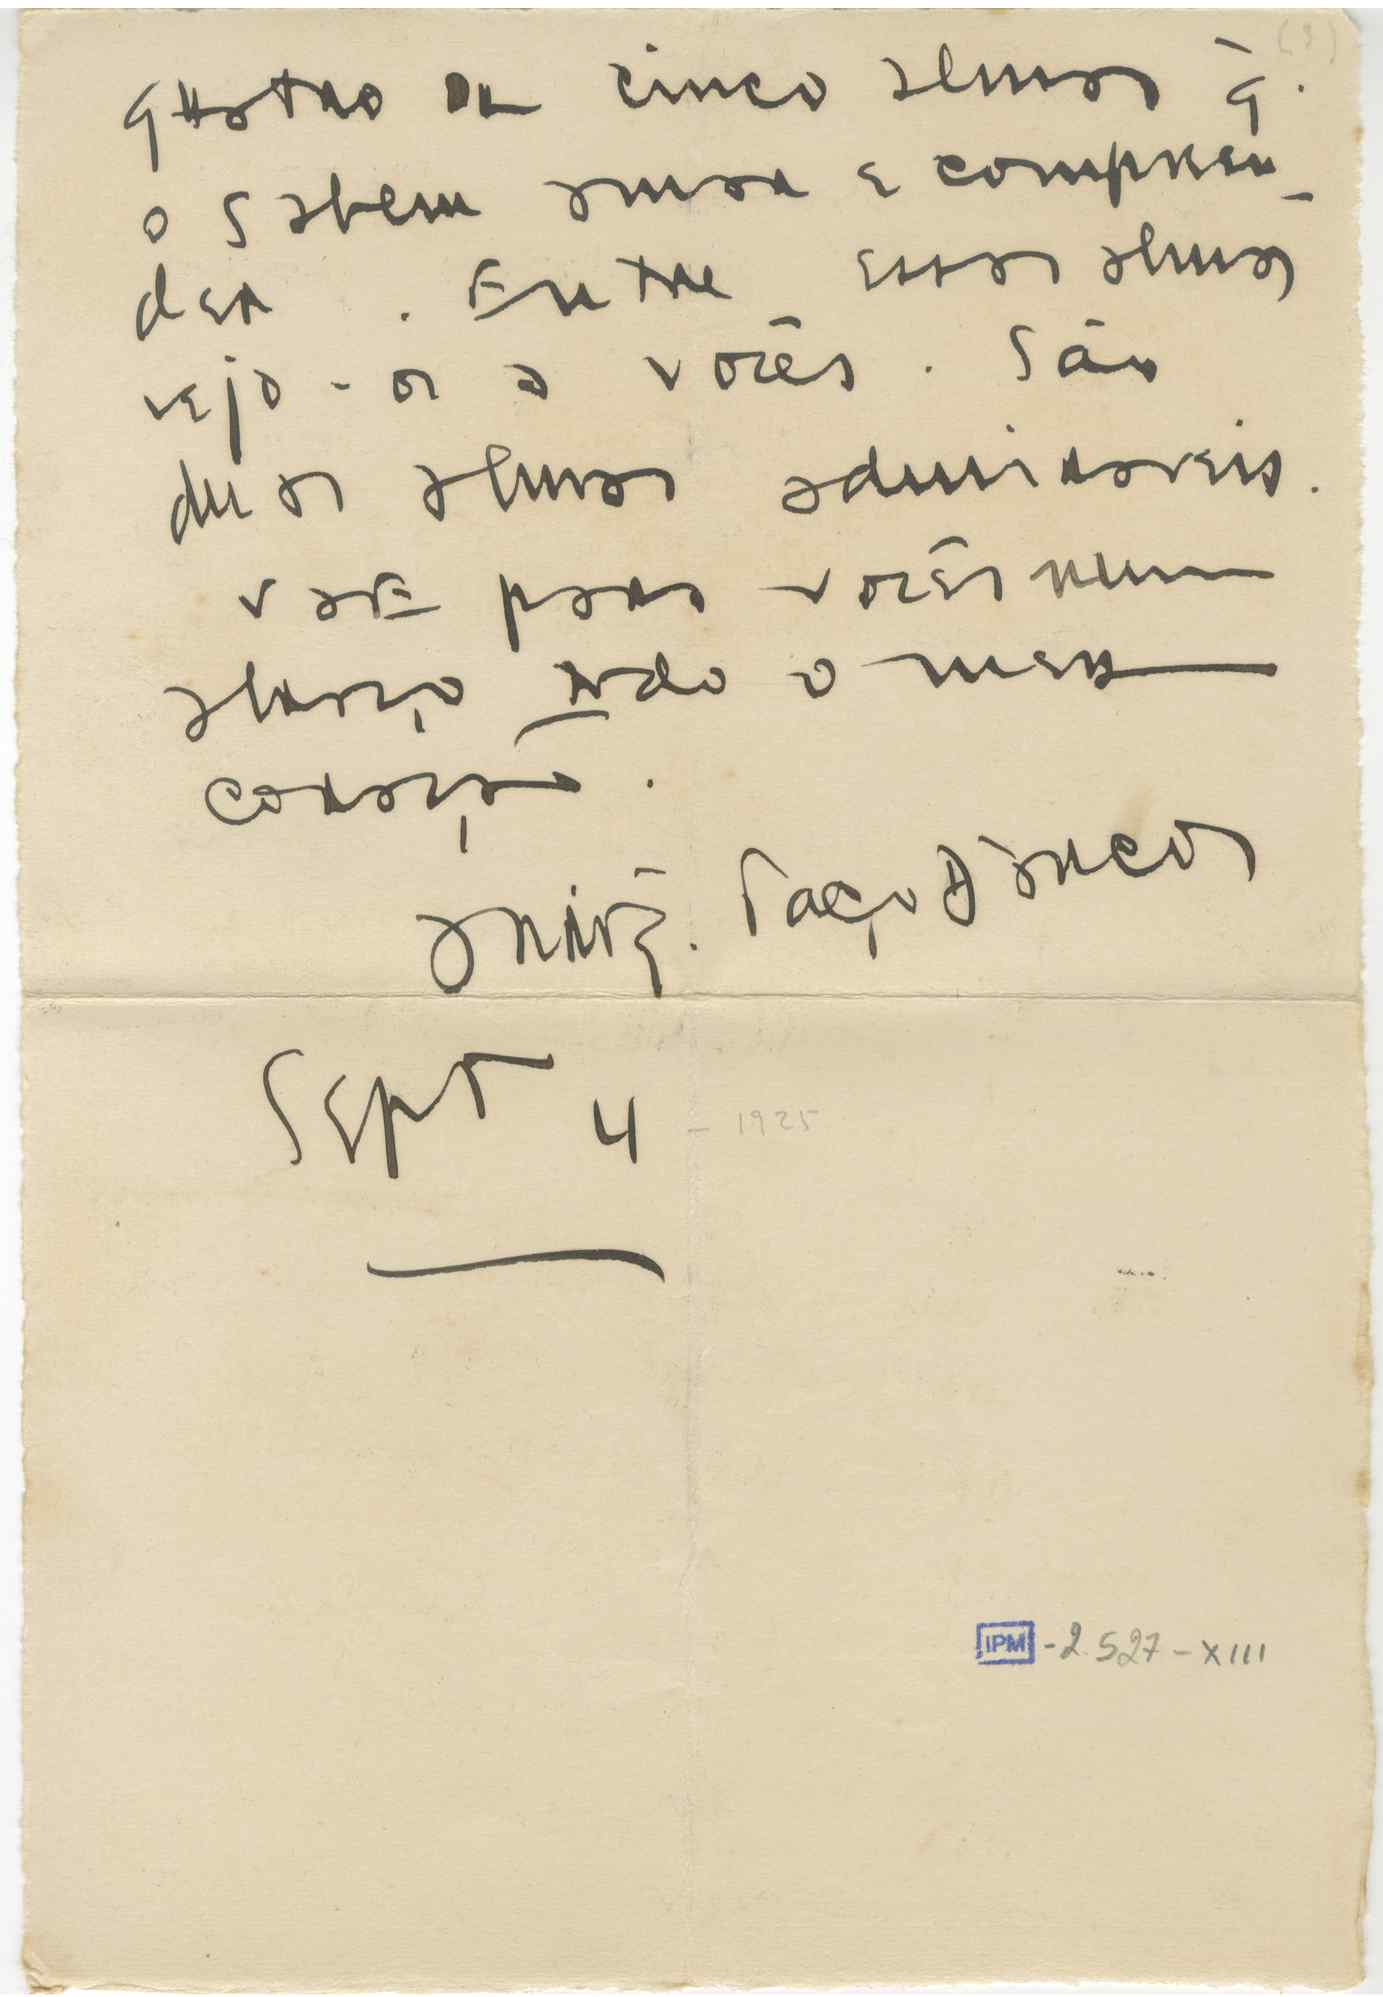 (3)
quatro ou cinco almas q̃.
o sabem amar e compreen-
der. Entre essas almas
vejo-os a vocês. São
duas almas admiraveis.
Vae para vocês num
abraço todo o meu
coração.
Paço D'Arcos
Sept 4 - 1925
IPM - 2.527 - XIII